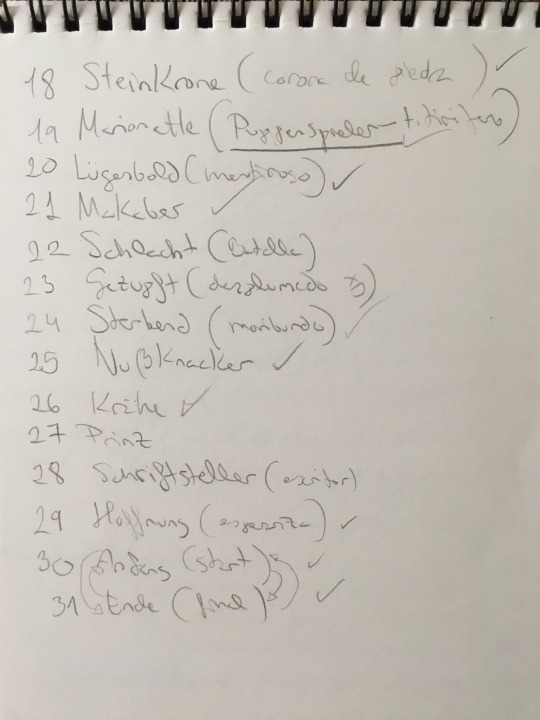 18 Steinkrone (corona de piedra) ✓
19 Marionette (Puppenspieler – titiritero) ✓
20 Lügenbold (mentiroso) ✓
21 Makaber ✓
22 Schlacht (batalla)
23 Gezupft (desplumado)
24 Sterbend (moribundo) ✓
25 Nußknacker ✓
26 Krähe ✓
27 Prinz
28 Schriftsteller (escritor)
29 Hoffnung (esperanza) ✓
30 Anfang (start) ✓
31 Ende (final) ✓